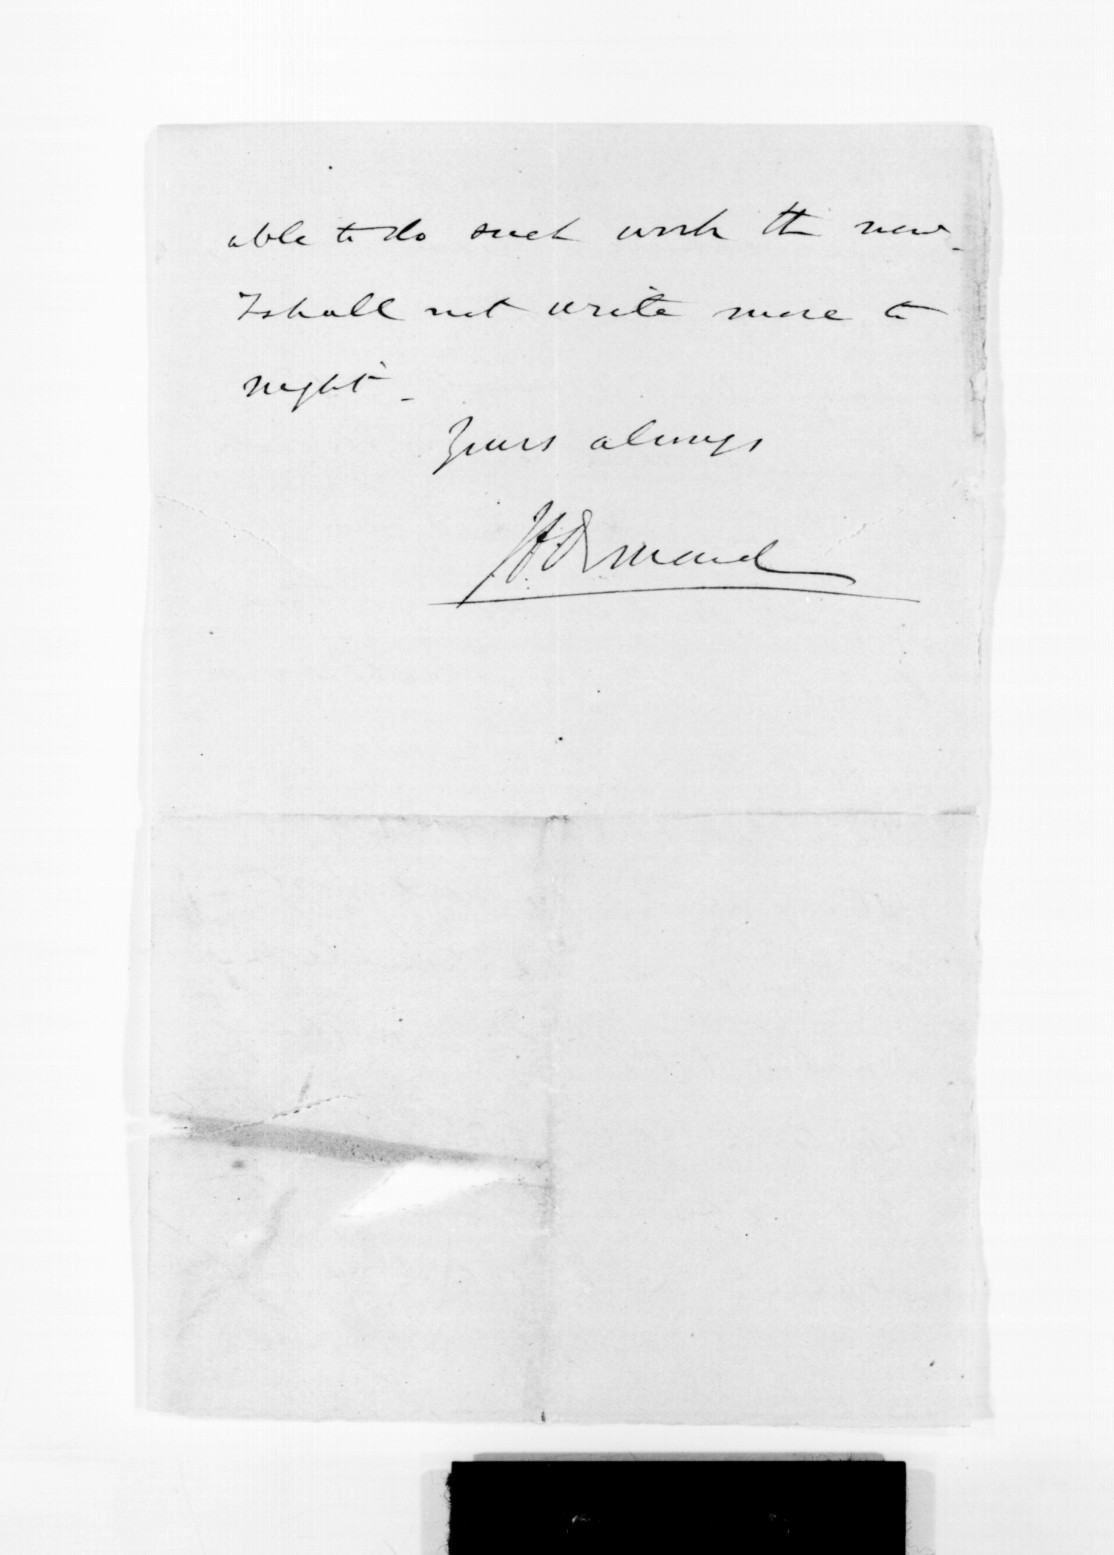 able to do such work th now.
I shall not write more to
night.
Yours always
J. D. Ormond